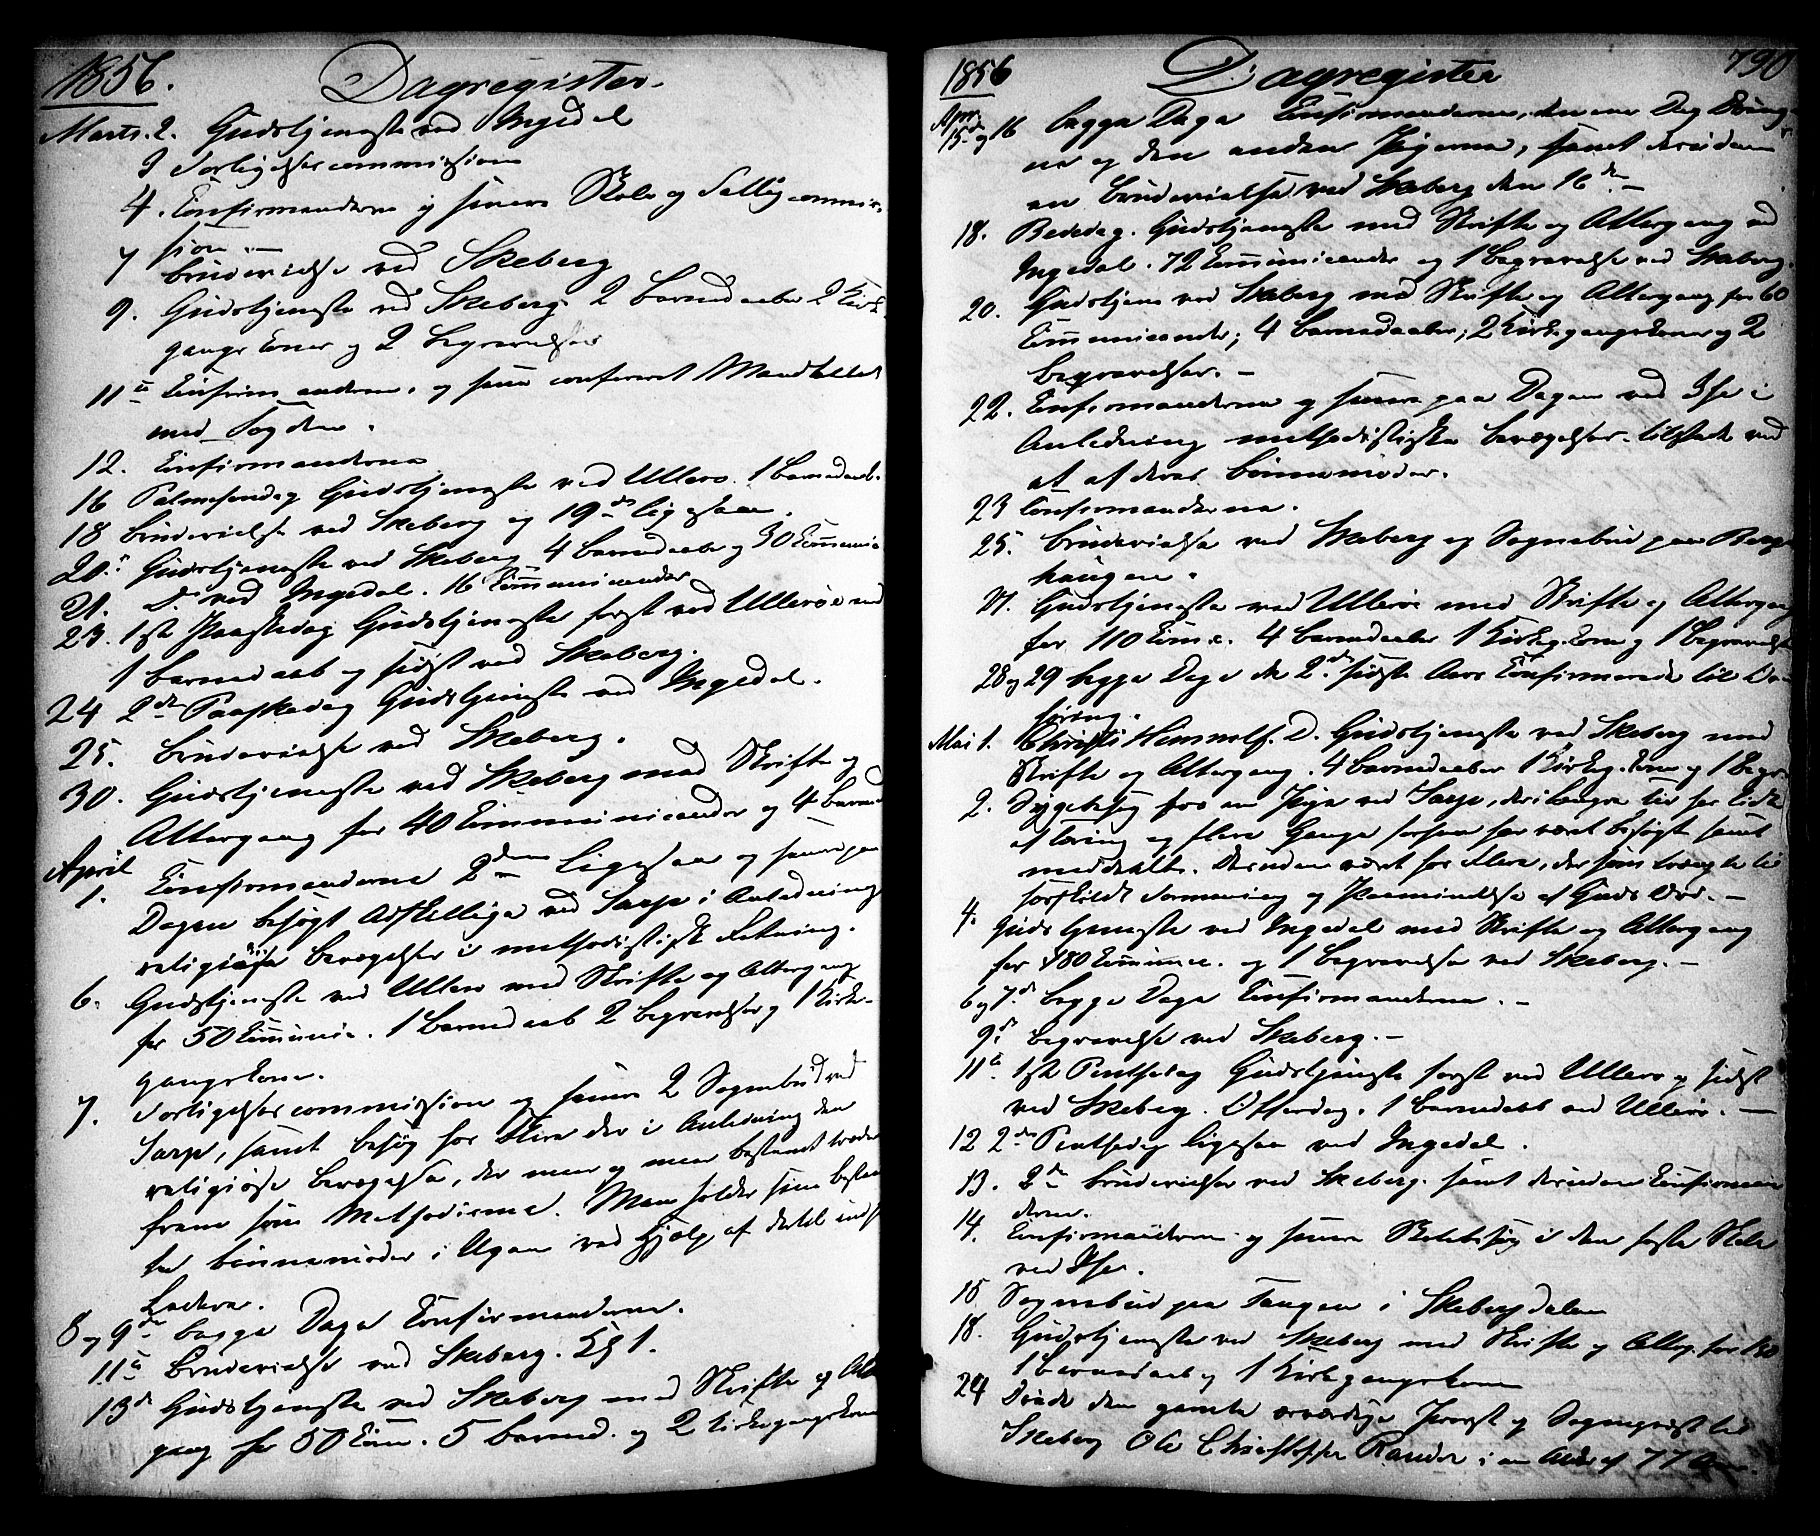 1856. Dagregister.
Marts. 2. Gudstjeneste ved Ingedal
3 Forligelsescommission
4. Confirmanderne og senere Skole og Fattigcommis-
sion.—
7 Brudevielse ved Skeberg
9. Gudstjeneste ved Skeberg. 2 Barnedaaber 2 Kirke
gangskoner og 2 Begravelser
11te Confirmanderne. og senere confereret Mandtallet
med
12. Confirmanderne
16 Palmesøndag Gudstjeneste ved Ullerø. 1 Barnedaab.
18 Brudevielse ved Skeberg og 19de ligesaa.
20. Gudstjeneste ved Skeberg 4 Barnedaabe og 30 Communic
21. Do ved Ingedal. 16 Communicander
23. 1st Paaskedag Gudstjeneste først ved Ullerøe med
1 Barnedaab og sidst ved Skeberg.
24 2den Paaskedag Gudstjeneste ved Ingedal.
25. Brudevielse ved Skeberg.
30. Gudstjeneste ved Skeberg med Skrifte og
Altergang for 40 Communicander og 4 Barned
April
1. Confirmanderne 2den Ligesaa og senere paa
Dagen besøgt Adskillige ved Sarp i Anledning
religiøse Bevægelser i methodistisk Retning.
6. Gudstjeneste ved Ullerø med Skrifte og Altergang
for 50 Communic. 1 Barnedaab 2 Begravelser og 1 Kirke-
gangskone.
7. Forligelsescommission og senere 2 Sognebud ved
Sarp, samt besøg for Flere der i Anledning den
religiøse Bevægelse, der meer og meer bestemt træder
frem som Methodisme. Man holder sine bestem
te Bønnemøder i Ugen ved Hjelp af dertil indst
Ledere.
8 og 9de begge Dage Confirmanderne.
11te Brudevielse ved Skeberg. 1.
13de Gudstjeneste ved Skeberg med Skrifte og Alter
gang for 50 Comm. 5 Barned. og 2 Kirkegangskoner
1856 Dagregister 790
Apr.
15de og 16 begge Dage Confirmanderne, den ene Dag Dreng-
ne og den anden Pigerne, samt desuden
en Brudevielse ved Skeberg den 16de—
18. Bededag. Gudstjeneste med Skrifte og Altergang ved
Ingedal. 72 Communicander og 1 Begravelse ved Skeberg.
20. Gudstjene ved Skeberg med Skrifte og Altergang for 60
Communicander; 4 Barnedaaber; 2 Kirkegangskoner og 2
Begravelser.—
22. Confirmanderne og senere paa Dagen ved Ise i
Anledning methodistiske Bevægelser tilstede ved
et af deres Bønnemøder.
23 Confirmanderne.
25. Brudevielse ved Skeberg og Sognebud paa Berg-
haugen.
27. Gudstjeneste ved Ullerøe med Skrifte og Altergang
for 110 Comc. 4 Barnedaaber 1 Kirkeg.Kone og 1 Begravelse
28 og 29 begge Dage de 2de sidste Aars Confirmerede til
høring.
Mai 1. Christi Himmelf. D. Gudstjeneste ved Skeberg med
Skrifte og Altergang. 4 Barnedaaber 1 Kirkeg.Kone og 1 Begr.
2. Sygebesøg hos en Pige ved Sarp, der i længere tid har lidt
af tæring og flere Gange forhen har været besøgt samt
meddelt. Desuden været hos Flere, der som trængte til
særskildt Formaning og Paamindelse af Guds Ord.—
4. Guds tjeneste ved Ingedal med Skrifte og Altergang
for 180 Commc. og 1 Begravelse ved Skeberg.—
6 og 7de begge Dage Confirmanderne.—
9de Begravelse ved Skeberg.—
11te 1ste Pintsedag Gudstjeneste først ved Ullerø og sidst
ved Skeberg. Offerdag. 1 Barnedaab ved Ullerø.—
12 2den Pintsedag ligesaa ved Ingedal.
13. 2de Brudevielser ved Skeberg. samt desuden Confirman
derne.
14. Confirmanderne og senere Skolebesøg i den faste Skole
ved Ise.
15 Sognebud paa Tangen i Skebergdalen
18. Gudstjeneste ved Skeberg med Skrifte og Alterg. for 130
1 Barnedaab og 1 Kirkegangskone
24 Døde den gamle ærværdige Provst og Sognepræst til
Skeberg Ole Christopher Rander i en Alder af 77 Aar.